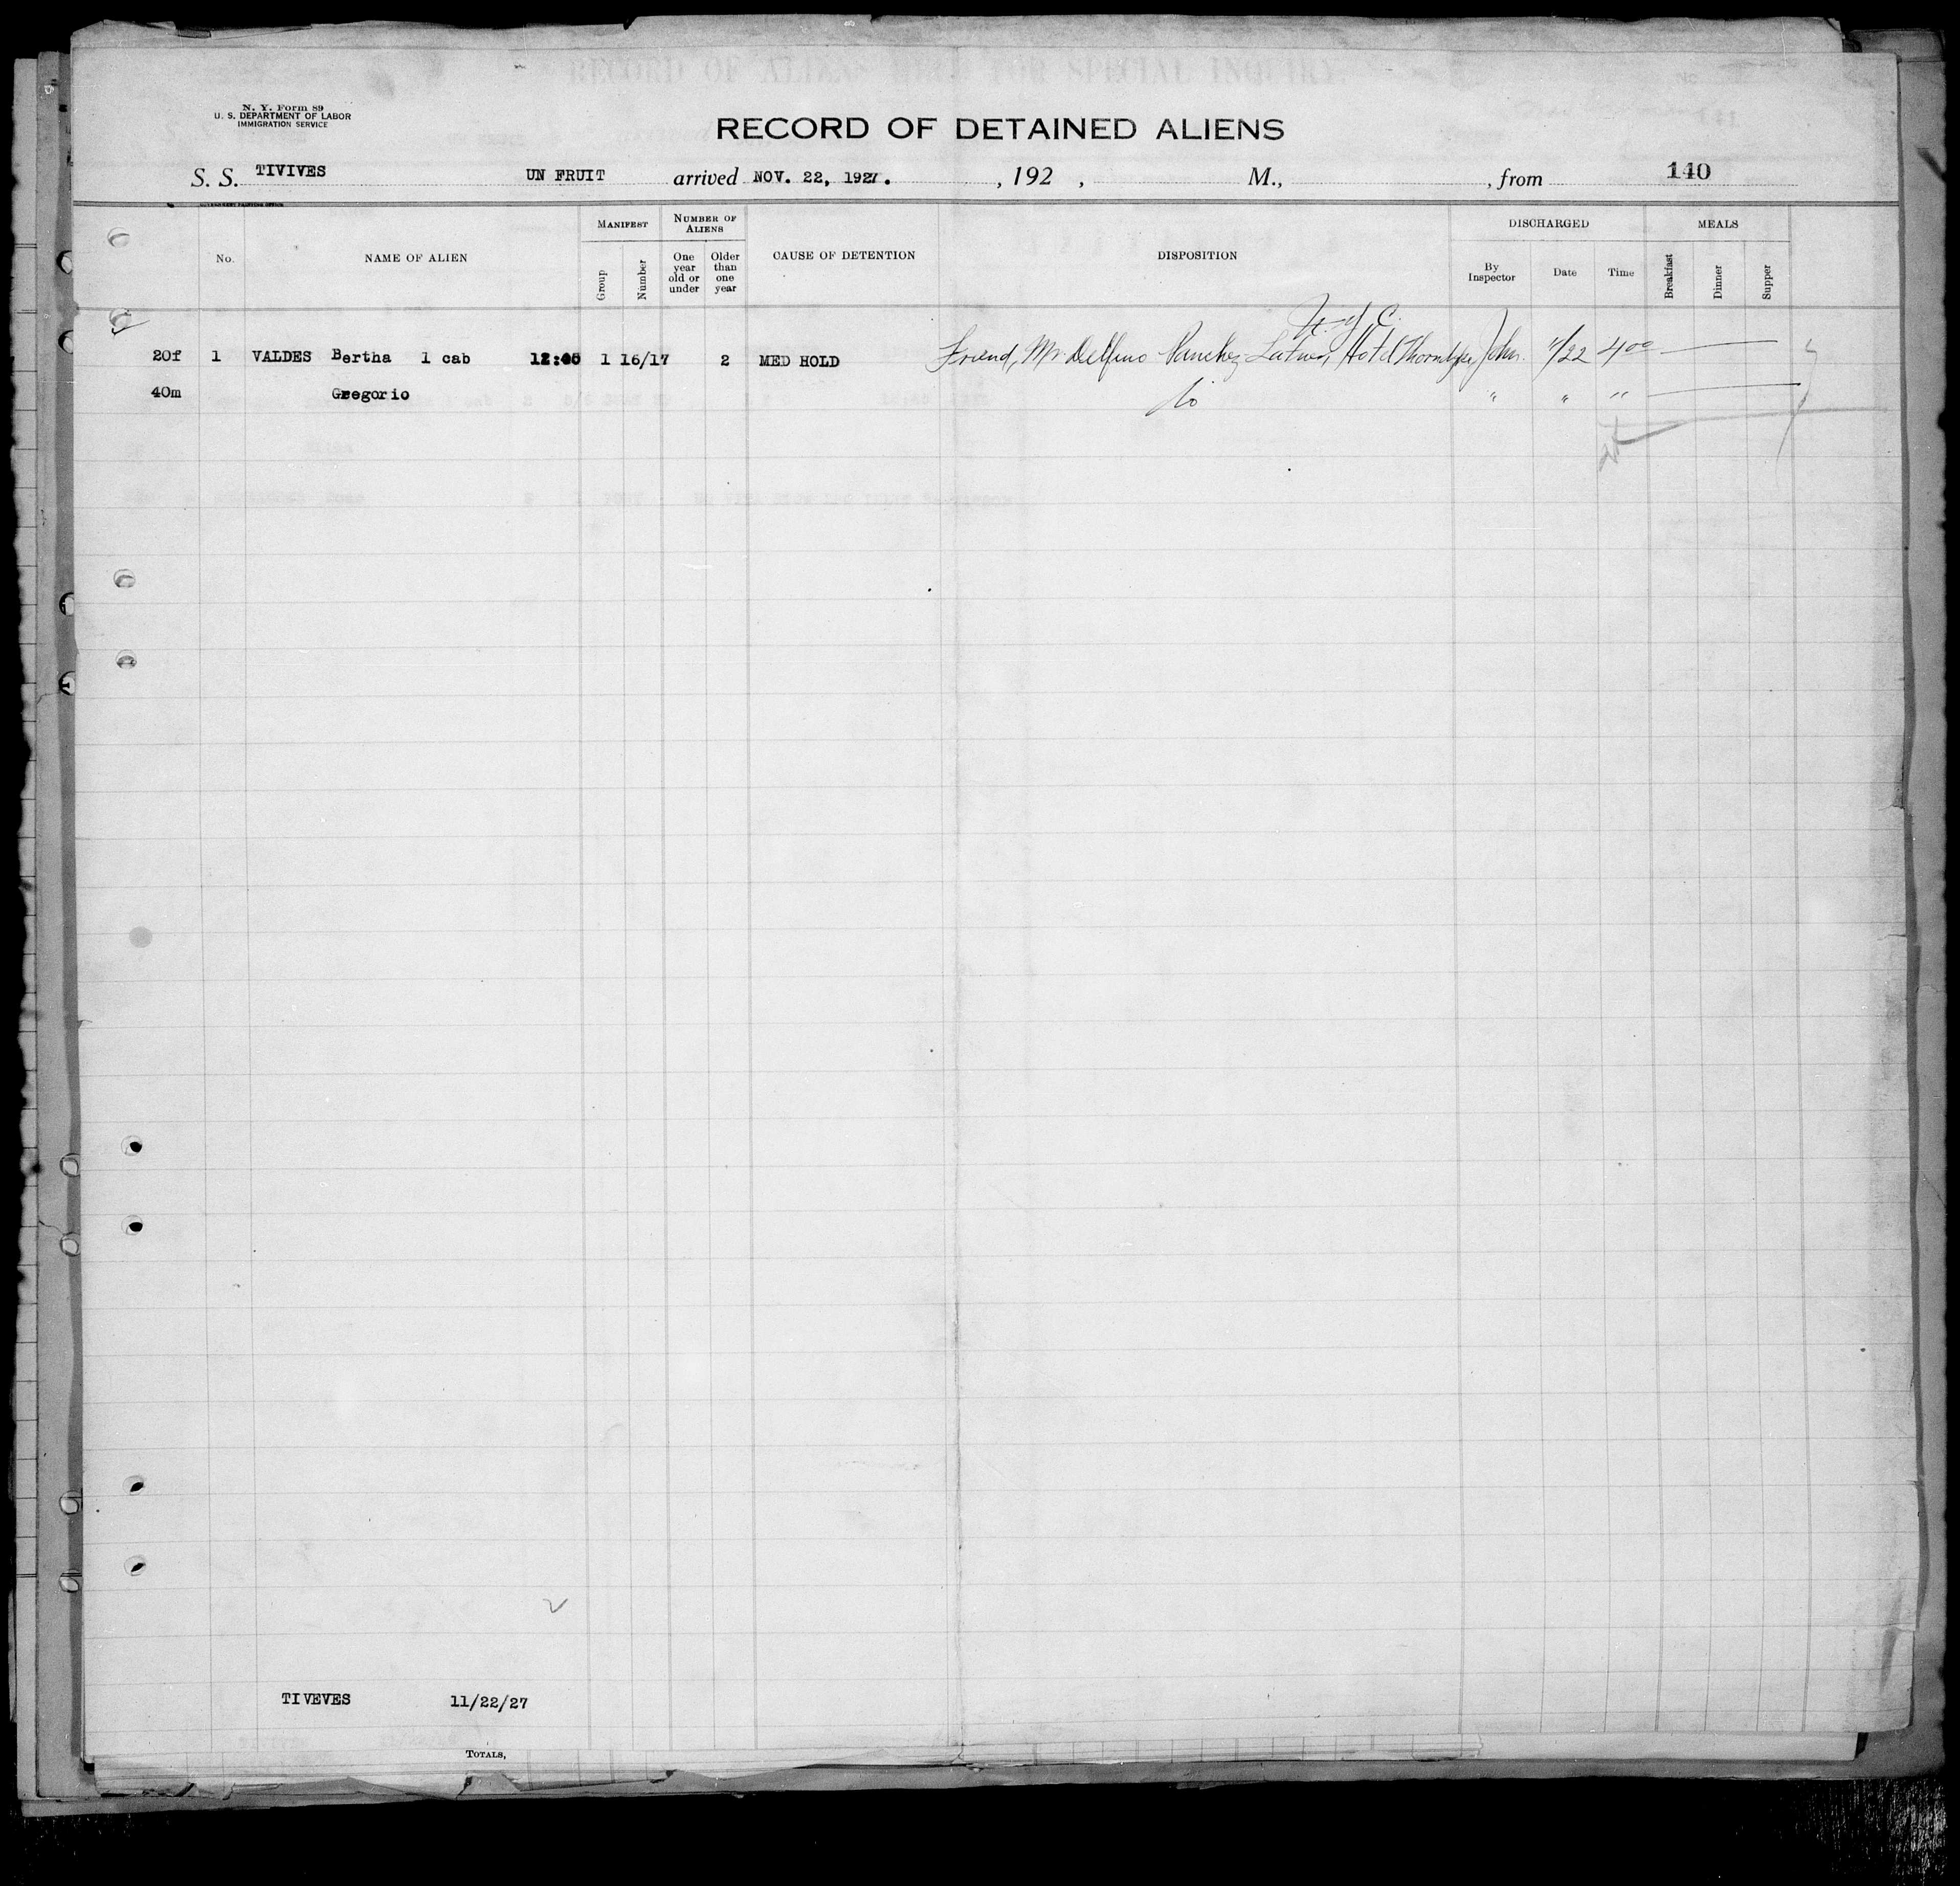 N. Y. Form 89
U. S. DEPARTMENT OF LABOR
IMMIGRATION SERVICE
RECORD OF DETAINED ALIENS
S. S. TIVIVES UN FRUIT arrived NOV. 22, 1927. , 192 , M., , from 140
No. NAME OF ALIEN MANIFEST Group Number NUMBER OF ALIENS One year old or under Older than one year CAUSE OF DETENTION DISPOSITION DISCHARGED By Inspector Date Time MEALS Breakfast Dinner Supper
N. Y. C.
20f 1 VALDES Bertha 1 cab 12:05 1 16/17 2 MED HOLD Friend, Mr Delfino Sanchez Hotel John. 11/22 4 00
40m Gregorio do " " "
TIVEVES 11/22/27
TOTALS,